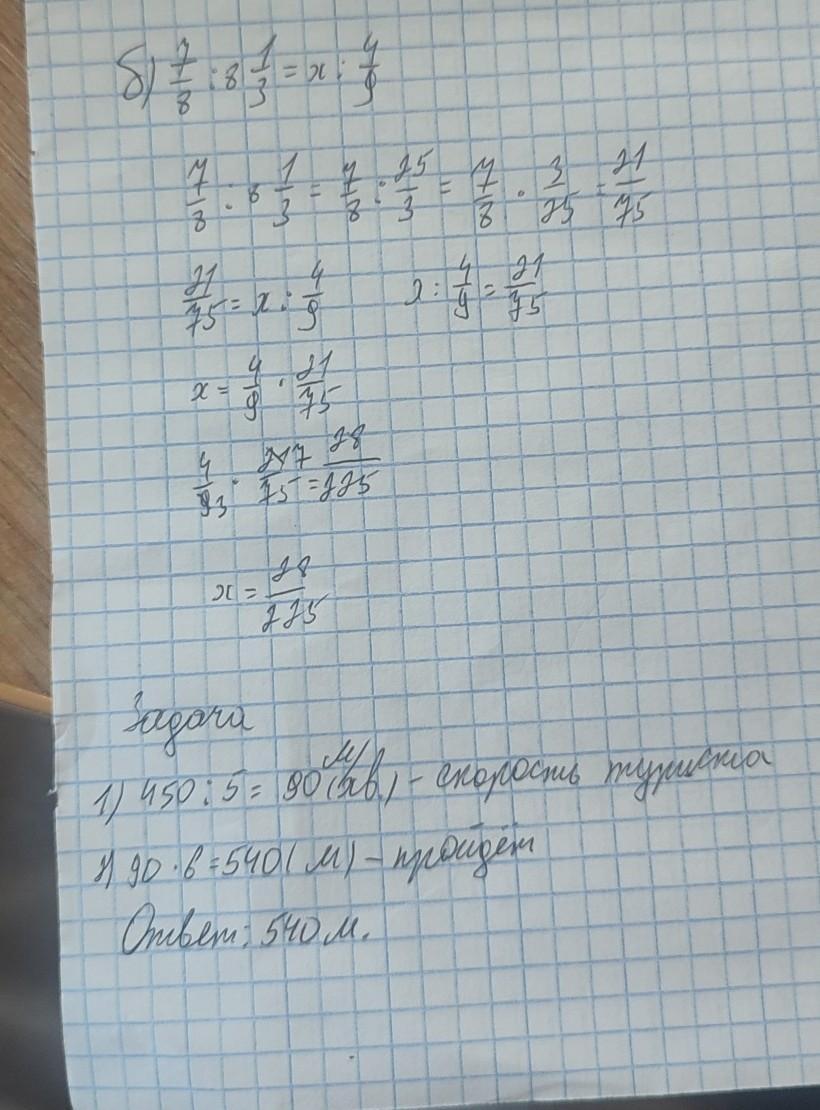 б) 7/8 : 8 1/3 = x : 4/9
7/8 : 8 1/3 = 7/8 : 25/3 = 7/8 · 3/25 = 21/75
21/75 = x : 4/9 x : 4/9 = 21/75
x = 4/9 · 21/75
4/9 3 · 21 7/75 = 28/225
x = 28/225
Задача
1) 450 : 5 = 90 (м/хв) - скорость туриста
2) 90 · 6 = 540 (м) - пройдёт
Ответ: 540 м.